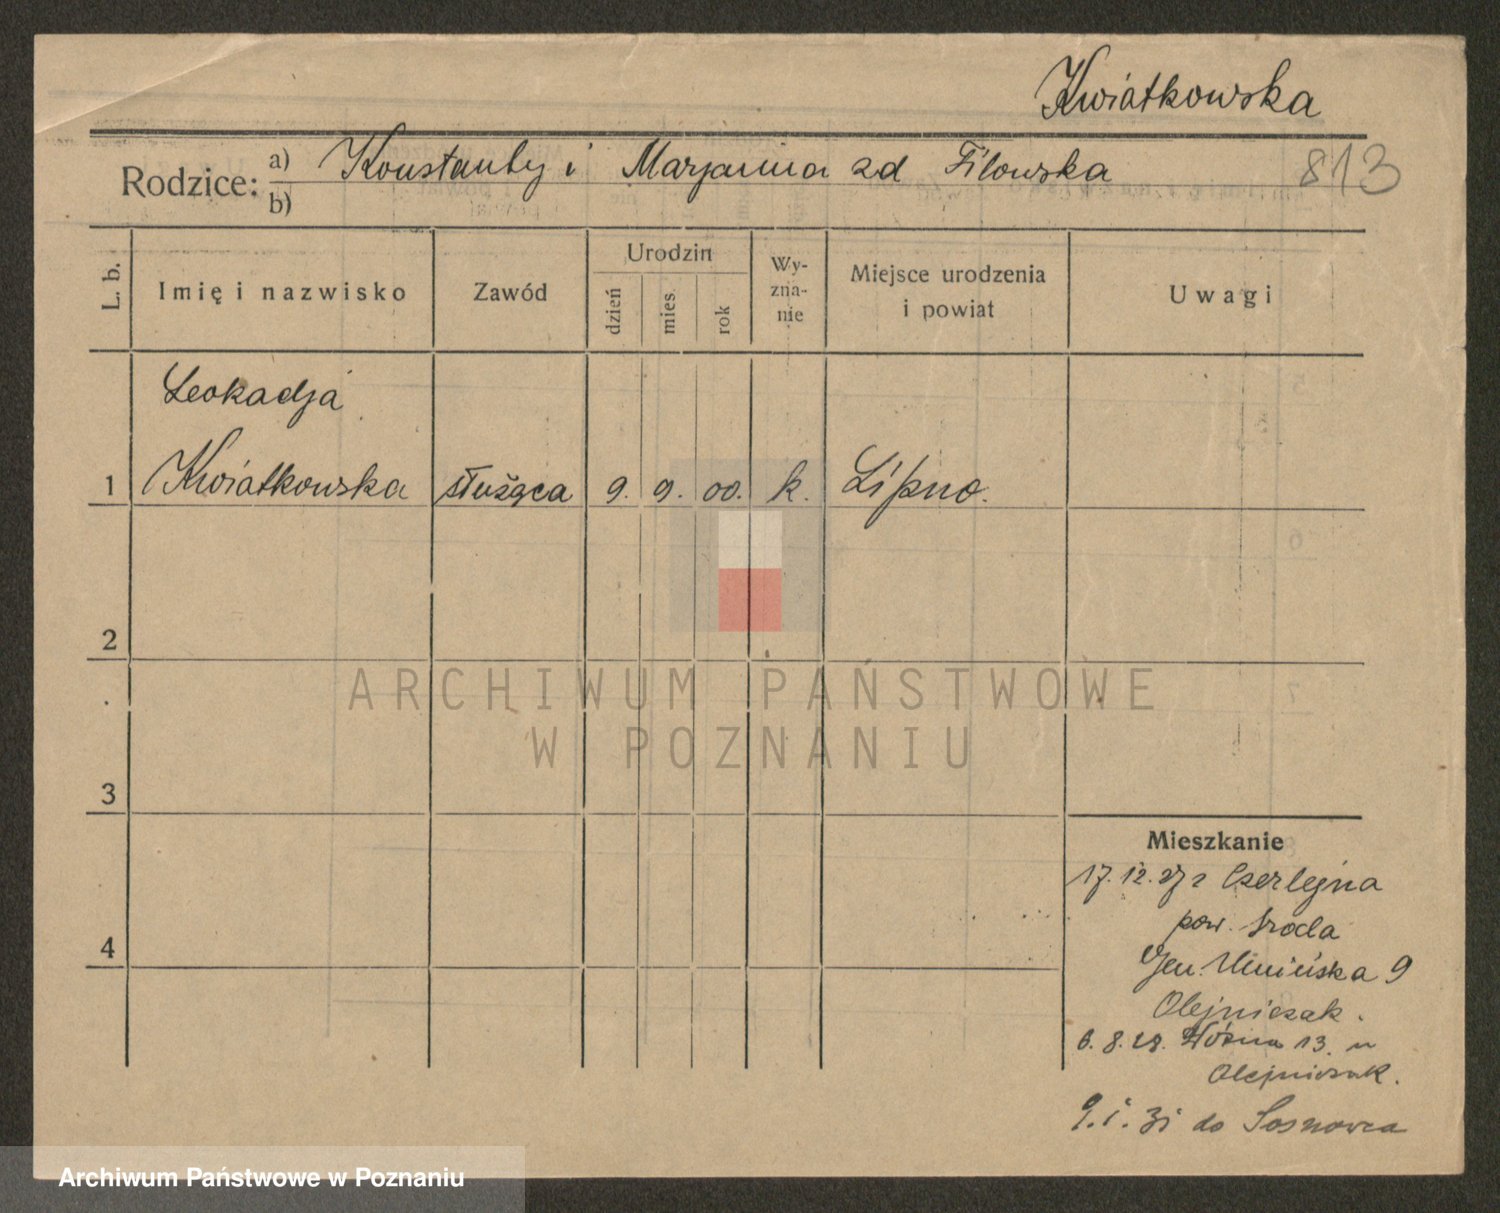 Kwiatkowska
Rodzice: a) Konstanty i Marjanna zd Filowska 813
b)
L. b. Imię i nazwisko Zawód Urodzin dzień mies. rok Wyznanie Miejsce urodzenia i powiat Uwagi
Leokadja
1 Kwiatkowska służąca 9. 9. 00. k. Lipno.
2
ARCHIWUM PAŃSTWOWE
W POZNANIU
3
Mieszkanie
17.12.27 z Czerlejna
pow. Środa
4
Gen. Umińska 9
Olejniczak.
6.8.28. Woźna 13. u
Olejniczak.
9.1.31 do Sosnowca
Archiwum Państwowe w Poznaniu